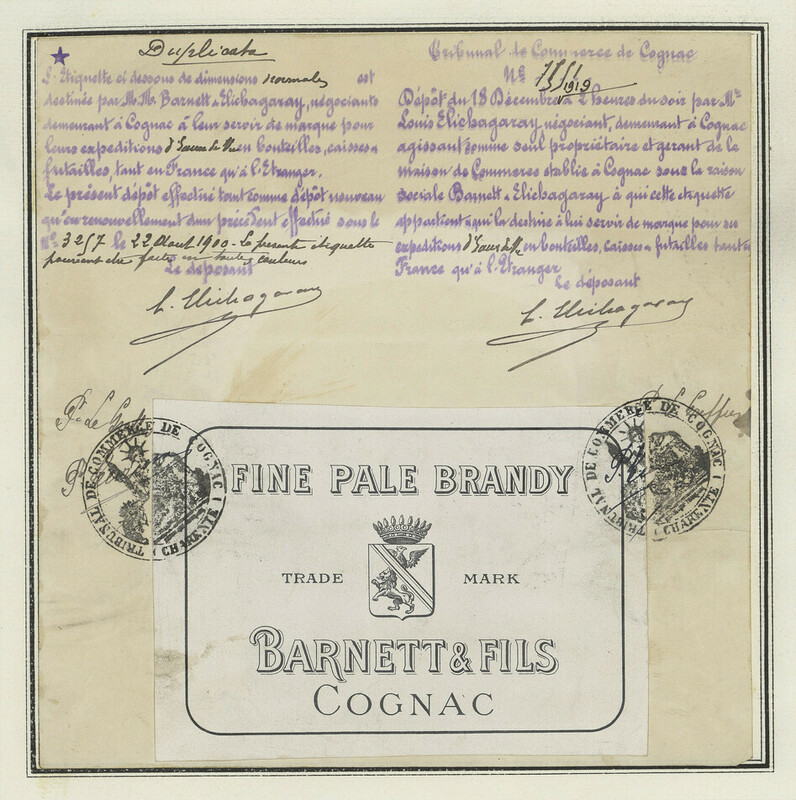 Duplicata
L'Etiquette ci dessous de dimensions normales est
destinée par M.M. Barnett & Elichagaray, négociants
demeurant à Cognac à leur servir de marque pour
leurs expéditions d'Eaux de Vie en bouteilles, caisses &
futailles, tant en France qu'à l'Etranger.
Le présent dépôt effectué tant comme dépôt nouveau
qu'en renouvellement d'un précédent effectué sous le
N° 3257 le 22 Aout 1900 - La présente étiquette
pourront être faites en toutes couleurs
Le déposant
L. Elichagaray
Tribunal de Commerce de Cognac
N°
1919
Dépôt du 18 Décembre à 2 heures du soir par Mr
Louis Elichagaray, négociant, demeurant à Cognac
agissant comme seul propriétaire et gérant de la
maison de Commerce établie à Cognac sous la raison
sociale Barnett & Elichagaray à qui cette étiquette
appartient & qui la destine à lui servir de marque pour ses
expéditions d'Eaux de Vie en bouteilles, caisses & futailles tant en
France qu'à l'Etranger
Le déposant
L. Elichagaray
TRIBUNAL DE COMMERCE DE COGNAC
(CHARENTE)
TRIBUNAL DE COMMERCE DE COGNAC
(CHARENTE)
FINE PALE BRANDY
TRADE MARK
BARNETT & FILS
COGNAC